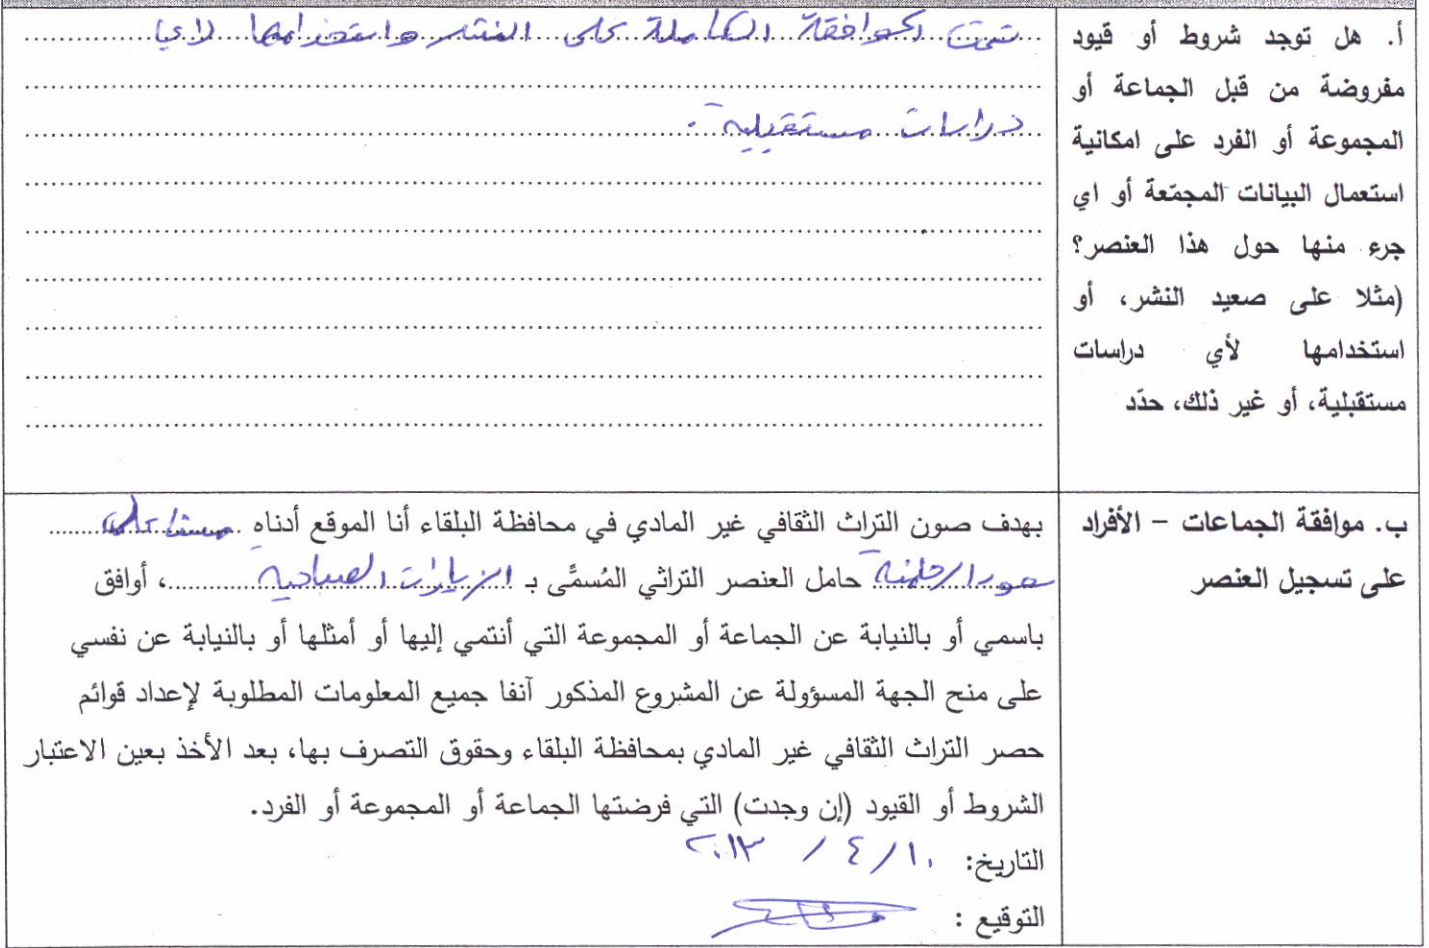 أ. هل توجد شروط أو قيود
مفروضة من قبل الجماعة أو
المجموعة أو الفرد على امكانية
استعمال البيانات المجمّعة أو اي
جرء منها حول هذا العنصر؟
(مثلا على صعيد النشر، أو
استخدامها لأي دراسات
مستقبلية، أو غير ذلك، حدّد
تمت الموافقة الكاملة على النشر واستخدامها لاي
دراسات مستقبلية.
ب. موافقة الجماعات – الأفراد
على تسجيل العنصر
بهدف صون التراث الثقافي غير المادي في محافظة البلقاء أنا الموقع أدناه
حامل العنصر التراثي المُسمَّى بـ الزيارات، أوافق
باسمي أو بالنيابة عن الجماعة أو المجموعة التي أنتمي إليها أو أمثلها أو بالنيابة عن نفسي
على منح الجهة المسؤولة عن المشروع المذكور آنفا جميع المعلومات المطلوبة لإعداد قوائم
حصر التراث الثقافي غير المادي بمحافظة البلقاء وحقوق التصرف بها، بعد الأخذ بعين الاعتبار
الشروط أو القيود (إن وجدت) التي فرضتها الجماعة أو المجموعة أو الفرد.
التاريخ: ١٠/ ٤ / ٢٠١٣
التوقيع :